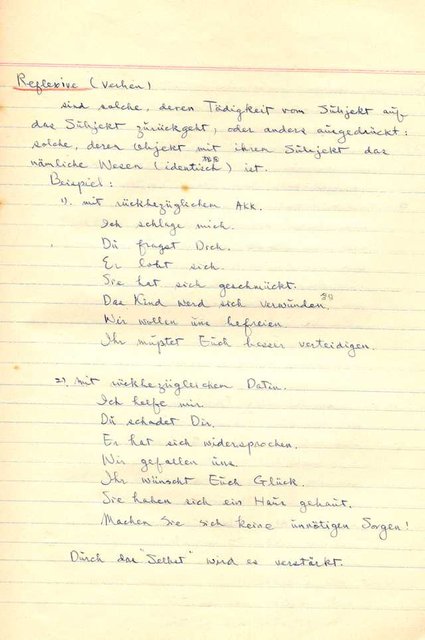 Reflexive (Verben)
sind solche, deren Tädigkeit vom Sübjekt auf
das Sübjekt zürückgeht, oder anders ausgedrückt:
solche, deren Objekt mit ihren Sübjekt das
nämliche Wesen (identisch) ist.
Beispiel:
1). mit rückbezüglichem Akk.
Ich schlage mich.
Dü fragst Dich.
Er lobt sich.
Sie hat sich geschmückt.
Das Kind werd sich verwünden.
Wir wollen üns befreien.
Ihr müßtet Euch besser verteidigen.
2) mit rückbezüglichem Dativ.
Ich helfe mir.
Dü schadet Dir.
Er hat sich widersprochen.
Wir gefallen üns.
Ihr wünscht Euch Glück.
Sie haben sich ein Haus gebaut.
Machen Sie sich keine ünnötigen Sorgen!
Dürch das "Selbst" werd es verstärkt.